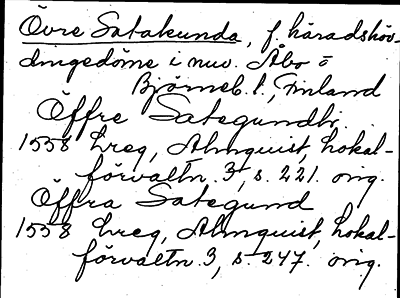 Övre Satakunda, f. häradshöv-
dingedöme i nuv. Åbo o
Björneb. l., Finland
Öffre Sategundh
1558 hreg, Almquist, Lokal-
förvaltn. 3, s. 221. orig.
Öffra Sategund
1558 hreg, Almquist, Lokal-
förvaltn. 3, s. 247. orig.